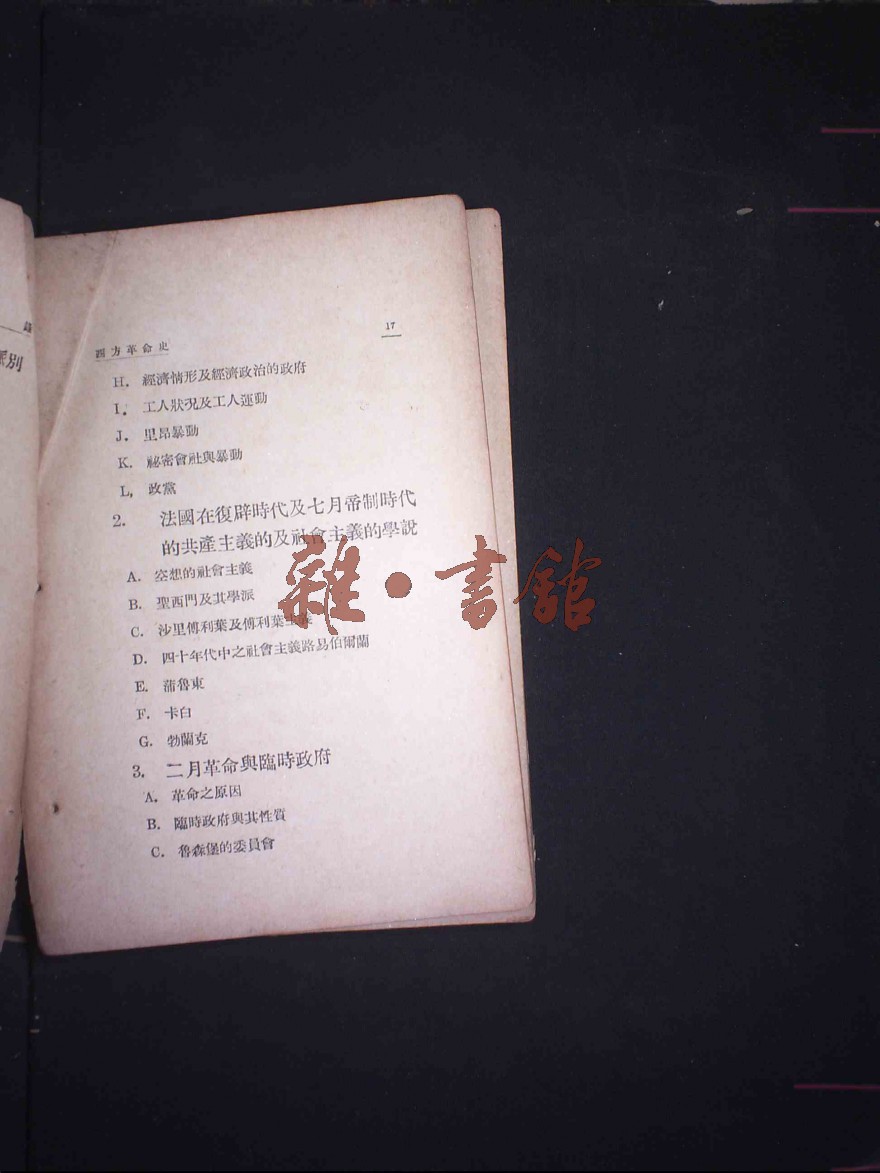 西方革命史
17
H. 經濟情形及經濟政治的政府
I. 工人狀况及工人運動
J. 里昂暴動
K. 祕密會社與暴動
L. 政黨
2. 法國在復辟時代及七月帝制時代
的共產主義的及社會主義的學說
A. 空想的社會主義
B. 聖西門及其學派
C. 沙里傅利葉及傅利葉主義
D. 四十年代中之社會主義路易伯爾蘭
E. 蒲魯東
F. 卡白
G. 勃蘭克
3. 二月革命與臨時政府
A. 革命之原因
B. 臨時政府與其性質
C. 魯森堡的委員會
雜•書館
別